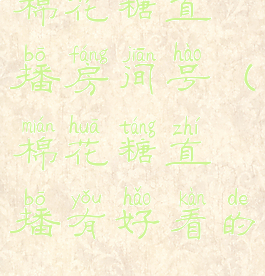 棉花糖直
bō fáng jiān hào
播房间号（
mián huā táng zhí
棉花糖直
bō yǒu hǎo kàn de
播有好看的